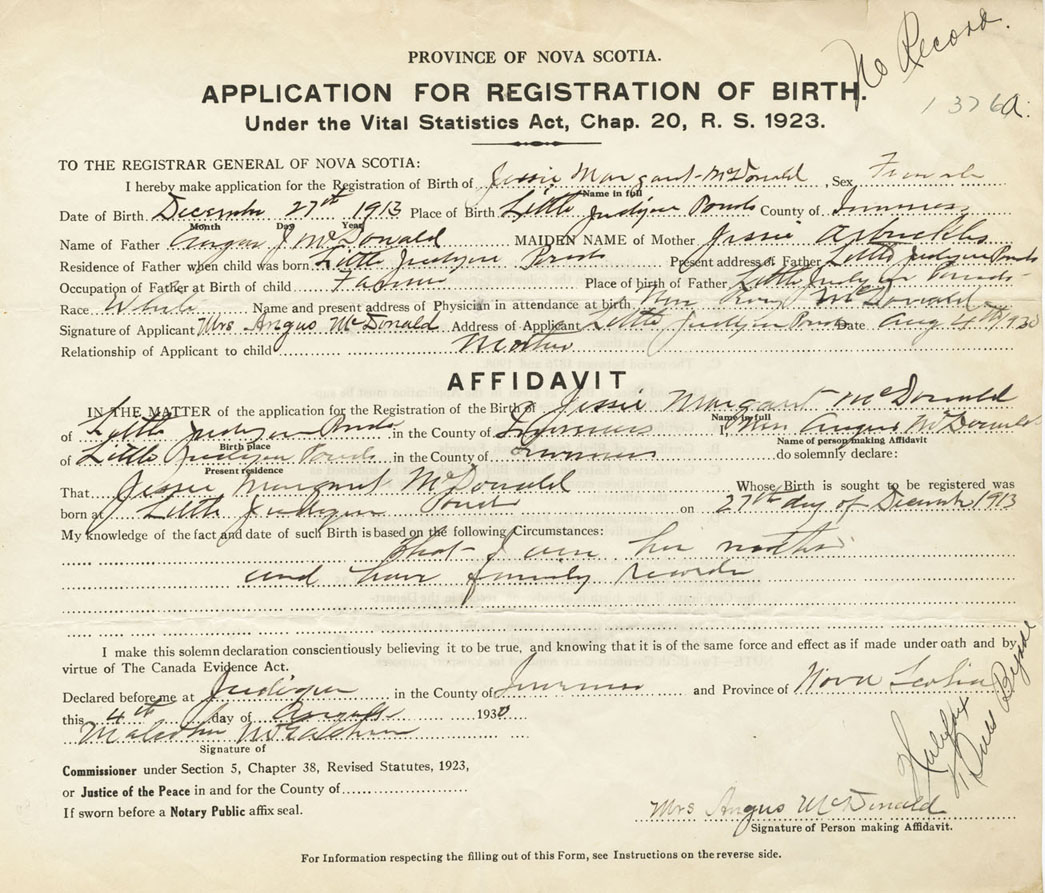 No Record.
PROVINCE OF NOVA SCOTIA.
APPLICATION FOR REGISTRATION OF BIRTH.
1376a.
Under the Vital Statistics Act, Chap. 20, R. S. 1923.
TO THE REGISTRAR GENERAL OF NOVA SCOTIA:
I hereby make application for the Registration of Birth of Jessie Margaret McDonald, Sex Female
Name in full
Date of Birth December 27th 1913 Place of Birth Little Judique Ponds County of Inverness
Month Day Year
Name of Father Angus J McDonald MAIDEN NAME of Mother Jessie Arbuckle
Residence of Father when child was born Little Judique Ponds Present address of Father Little Judique Ponds
Occupation of Father at Birth of child Farmer Place of birth of Father Little Judique Ponds
Race White Name and present address of Physician in attendance at birth McDonald
Signature of Applicant Mrs Angus McDonald Address of Applicant Little Judique Ponds Date Aug 4th 1930
Relationship of Applicant to child Mother
AFFIDAVIT
IN THE MATTER of the application for the Registration of the Birth of Jessie Margaret McDonald
Name in full
of Little Judique Ponds in the County of Inverness I, Mrs Angus McDonald
Birth place Name of person making Affidavit
of Little Judique Ponds in the County of Inverness do solemnly declare:
Present residence
That Jessie Margaret McDonald Whose Birth is sought to be registered was
born at Little Judique Ponds on 27th day of December 1913
My knowledge of the fact and date of such Birth is based on the following Circumstances:
that I am her mother
and have family records
I make this solemn declaration conscientiously believing it to be true, and knowing that it is of the same force and effect as if made under oath and by
virtue of The Canada Evidence Act.
Declared before me at Judique in the County of Inverness and Province of Nova Scotia
this 4th day of August 1930
Malcolm McEachern
Signature of
Commissioner under Section 5, Chapter 38, Revised Statutes, 1923,
or Justice of the Peace in and for the County of
If sworn before a Notary Public affix seal.
Halifax
Mrs Angus McDonald
Signature of Person making Affidavit.
For Information respecting the filling out of this Form, see Instructions on the reverse side.